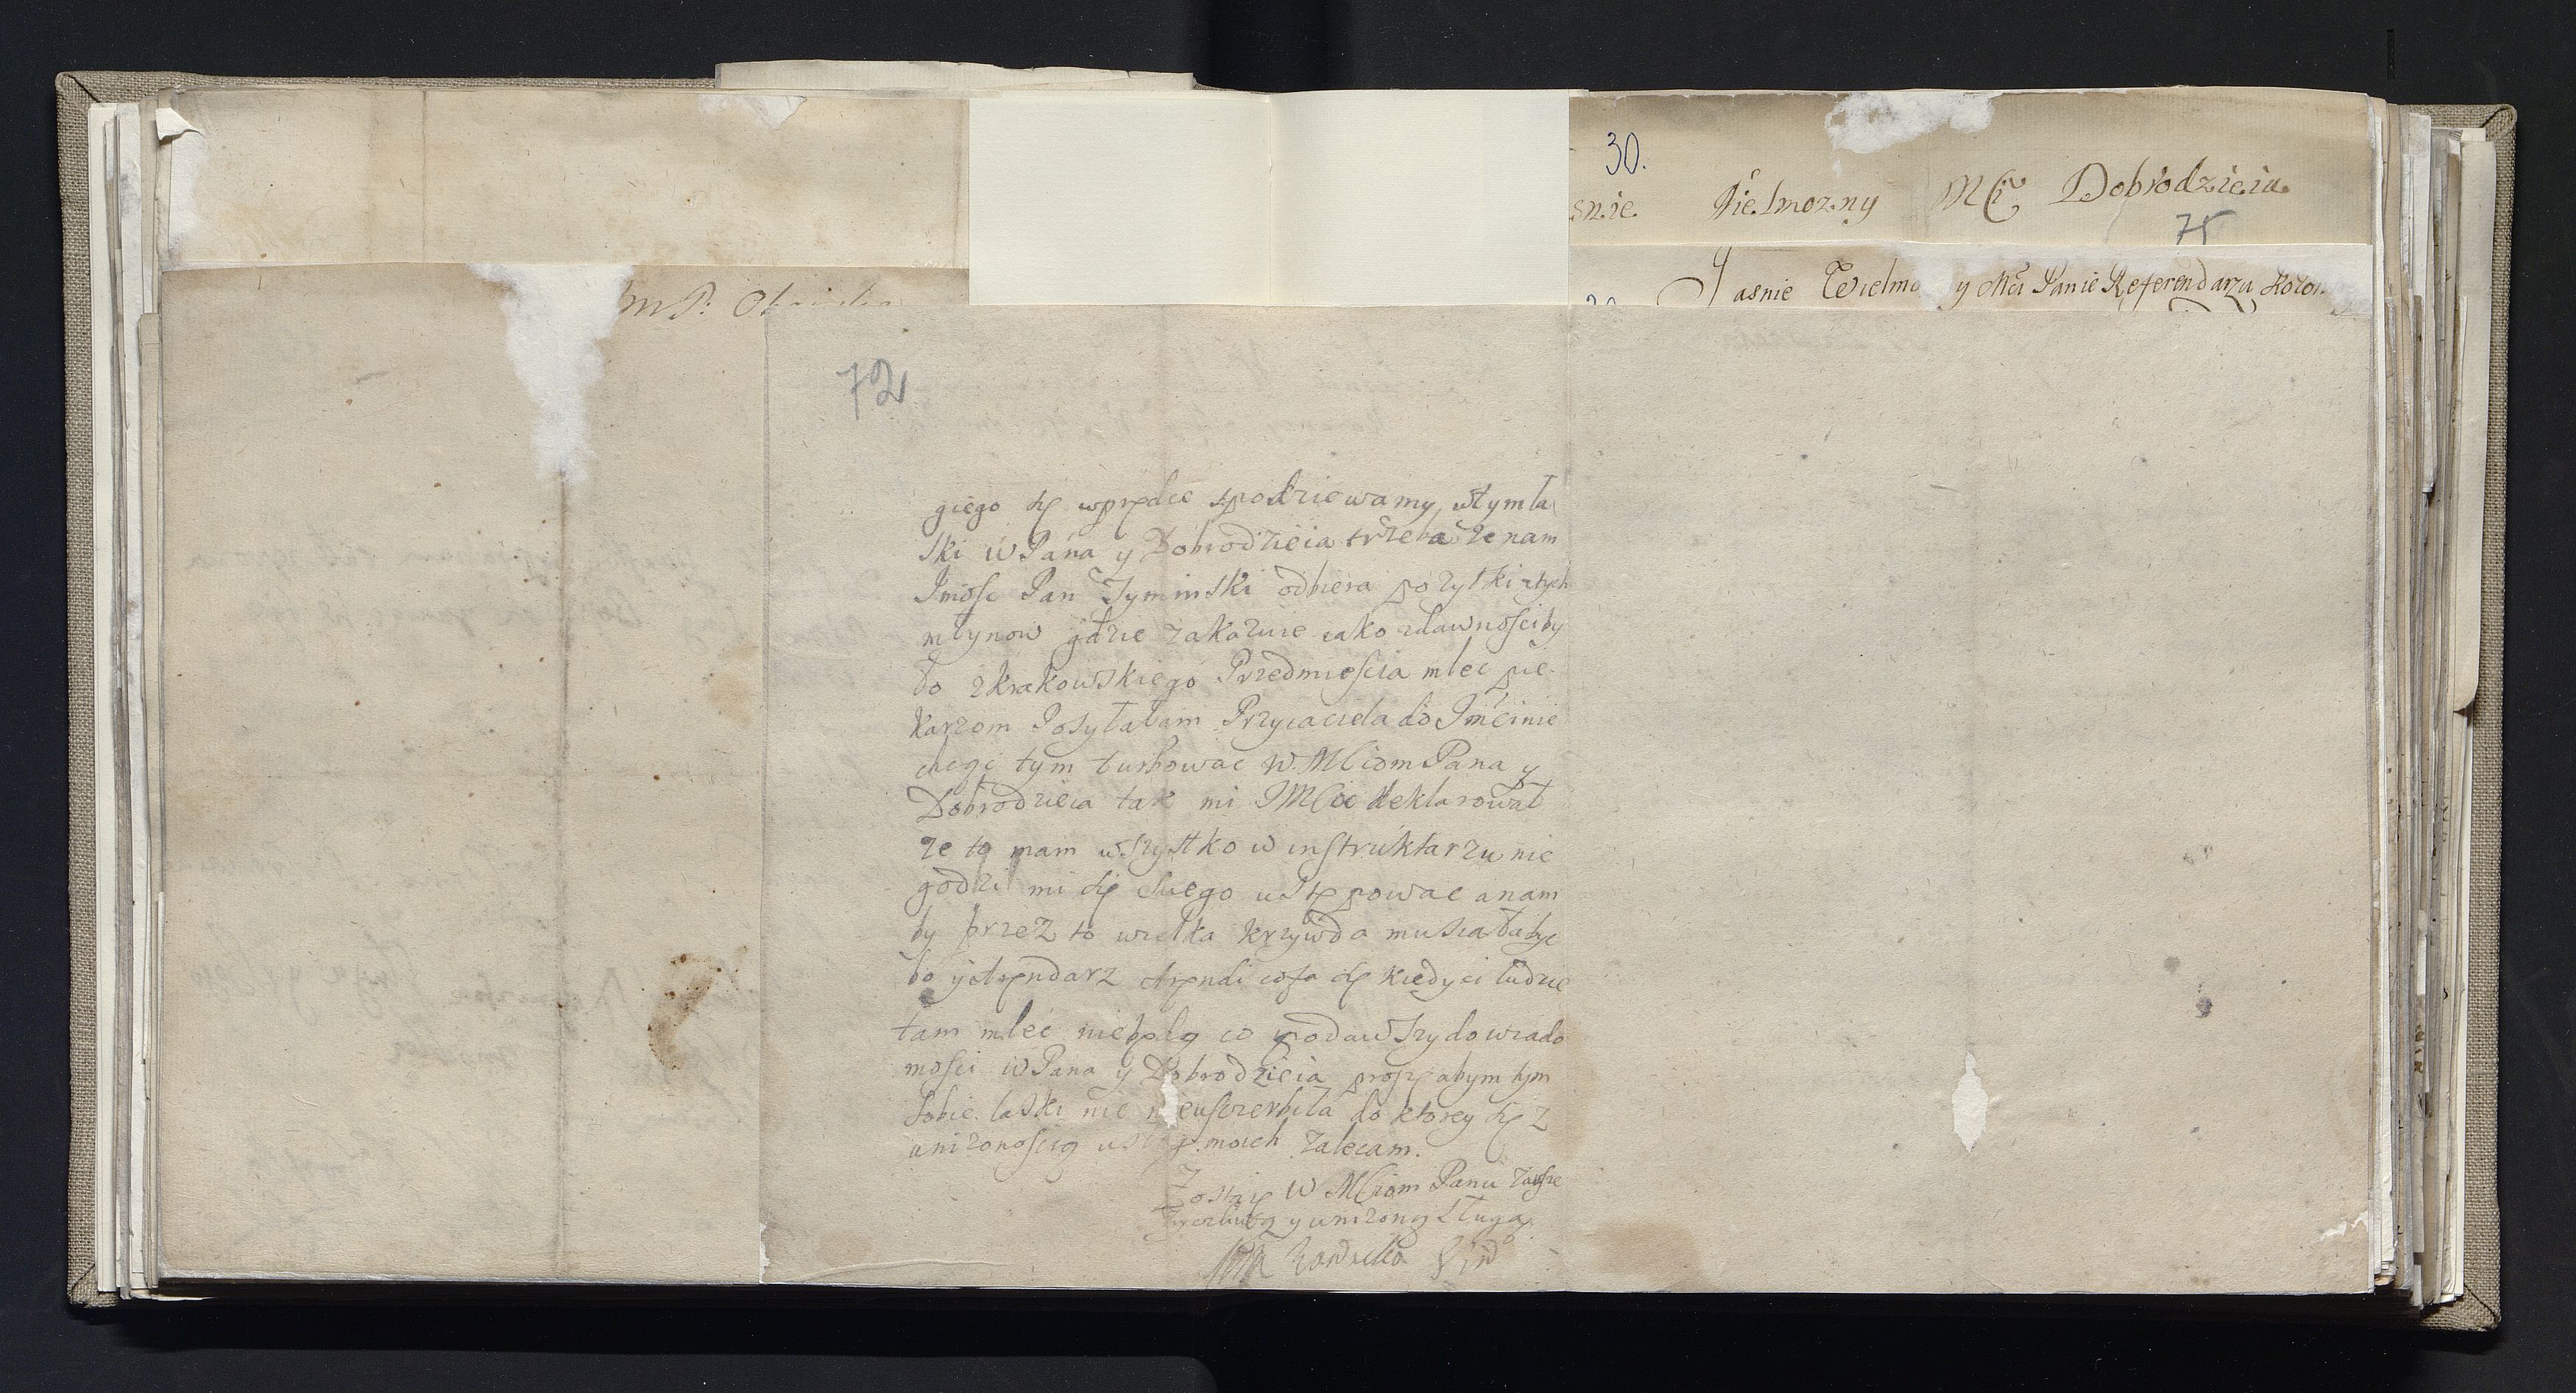 30.
snie Wielmozny MCi Dobrodzieiu
75
Jasnie Wielmo y Mci Panie Referendarzu Koron
m P.
72
giego się wprędce spodziewamy, wtym ła
ski WPana y Dobrodzieia trzeba ze nam
Jmosc Pan Tyminski odbiera pozytki ztych
młynow gdzie zakazuie iako zdawnosci by
ło zKrakowskiego Przedmiescia mlec pie
karzom Posyłałam Przyiaciela do Jmci nie
chcąc tym turbowac W. MCiom Pana y
Dobrodzieia tak mi JMSC deklarował
ze to mam wszystko w instruktarzu nie
godzi mi się swego ustępowac a nam
by przez to wielka krzywda musiała byc
bo y Arendarz Arendi cofa się kiedy ci ludzie
tam mlec niebędą co podawszy do wiado
mosci WPana y Dobrodzieia proszę abym tym
sobie łaski nie neuszczerbiła do ktorey się z
unizonoscią usł moich zalecam.
Zostaię W MCiom Panu zawsze
zyczliwą y unizoną sługą